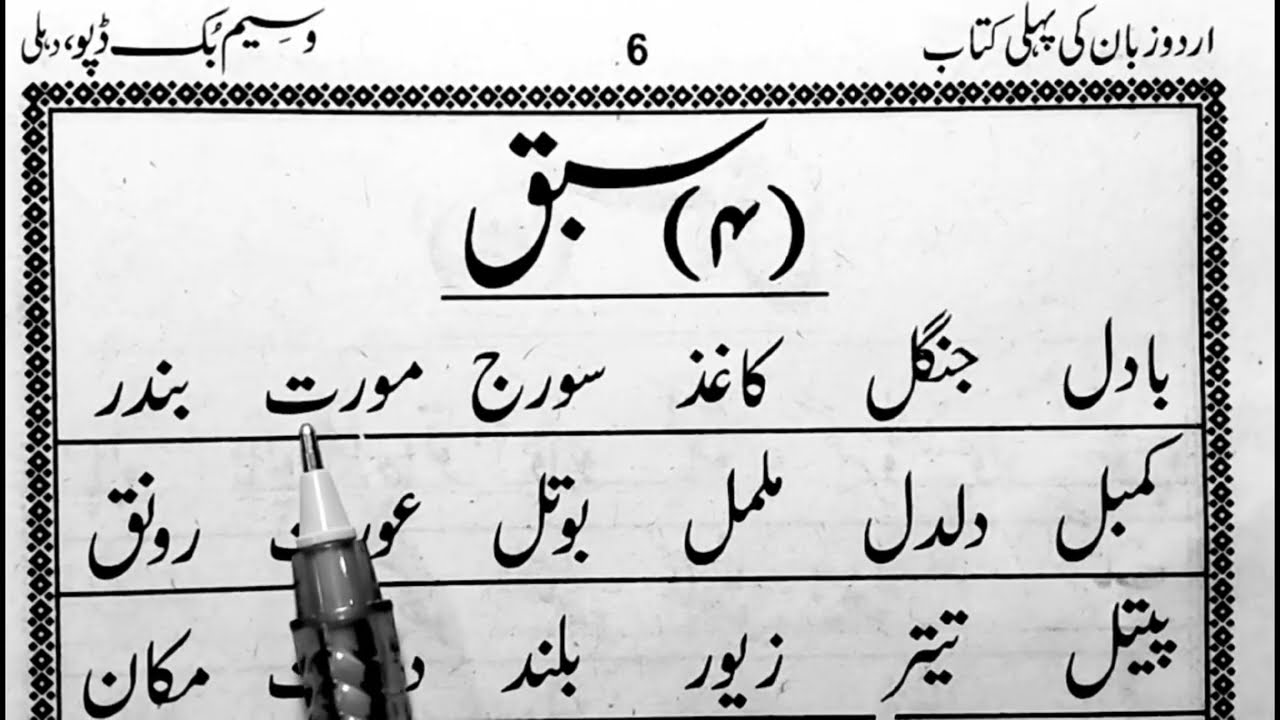 اردو زبان کی پہلی کتاب 6 وسیم بُک ڈپو، دہلی
سبق (۴)
بادل جنگل کاغذ سورج مورت بندر
کمبل دلدل ململ بوتل رونق
پیتل تیتر زیور بلند مکان